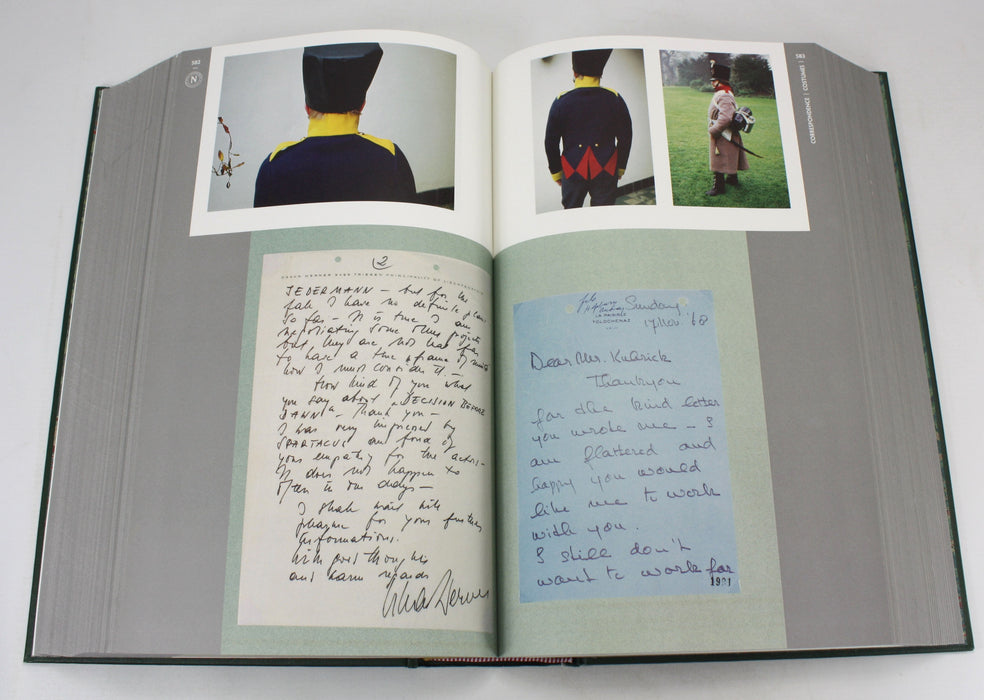 582
N
583
CORRESPONDENCE | COSTUMES |
2
OSKAR WERNER 9495 TRIESEN PRINCIPALITY OF LIECHTENSTEIN
JEDERMANN – but for the
fall I have no definite plans
so far – It is true I am
negotiating some other projects
but they are not had far
to have a time frame of
now I must consider it –
How kind of you what
you say about „DECISION BEFORE
DAWN“ – Thank you –
I was very impressed by
SPARTACUS and fond of
your empathy for the actors –
It does not happen to
often in our days –
I shall wait with
pleasure for your further
informations.
With good thoughts
and warm regards
Oskar Werner
Audrey
LA PAISIBLE
TOLOCHENAZ
Sunday
17 Nov. '68
Dear Mr. Kubrick
Thankyou
for the kind letter
you wrote me – I
am flattered and
happy you would
like me to work
with you.
I still don't
want to work for
1991